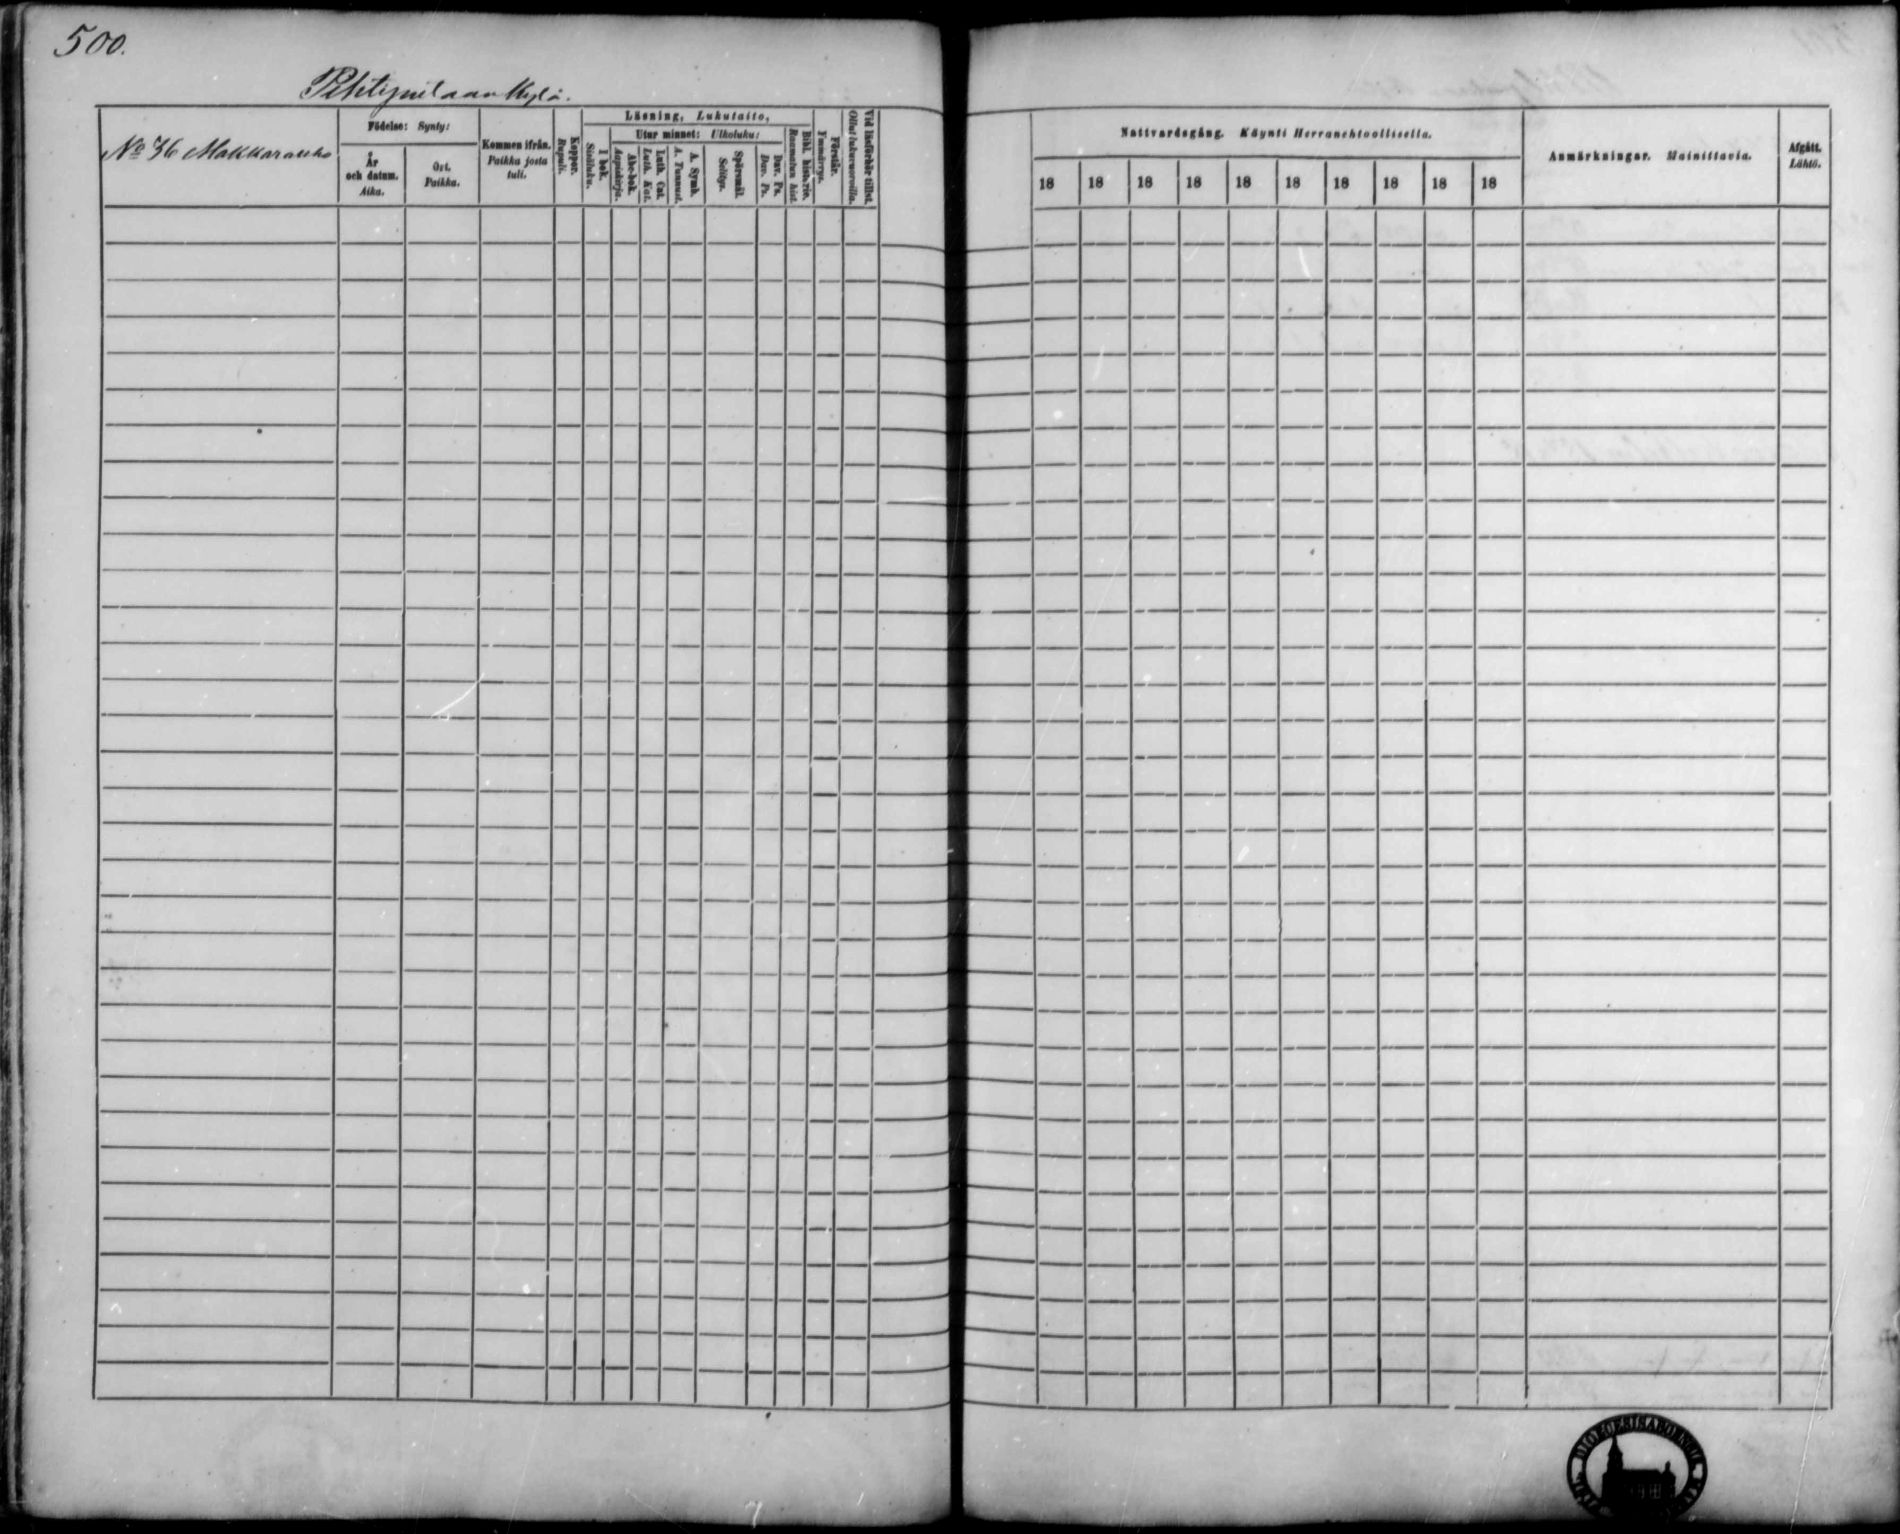 500.
Kylä.
Nº 46
Födelse: Synty:
År och datum. Aika.
Ort. Paikka.
Kommen ifrån. Paikka josta tuli.
Koppor. Rupuli.
Läsning, Lukutaito,
I bok. Sisäluku.
Utur minnet: Ulkoluku:
Abc-bok. Aapiskirja.
Luth. Cat. Luth. Kat.
A. Symb. A. Tunnust.
Spörsmål. Selitys.
Dav. Ps. Dav. Ps.
Bibl. historie. Raamatun hist.
Förstår. Ymmärrys.
Vid läsförhör tillst. Ollut lukuvuoroilla.
Nattvardsgång. Käynti Herranehtoollisella.
18 18 18 18 18 18 18 18 18 18
Anmärkningar. Mainittavia.
Afgått. Lähtö.